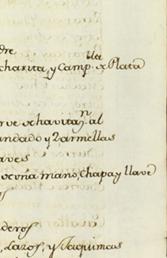 dre
charita, y Camp.lla de Plata
rve ochavitas.n al
andado y 2 armellas
aves
oe vna mano, chapa y llave
deros
, Lazos, y Jaquimas